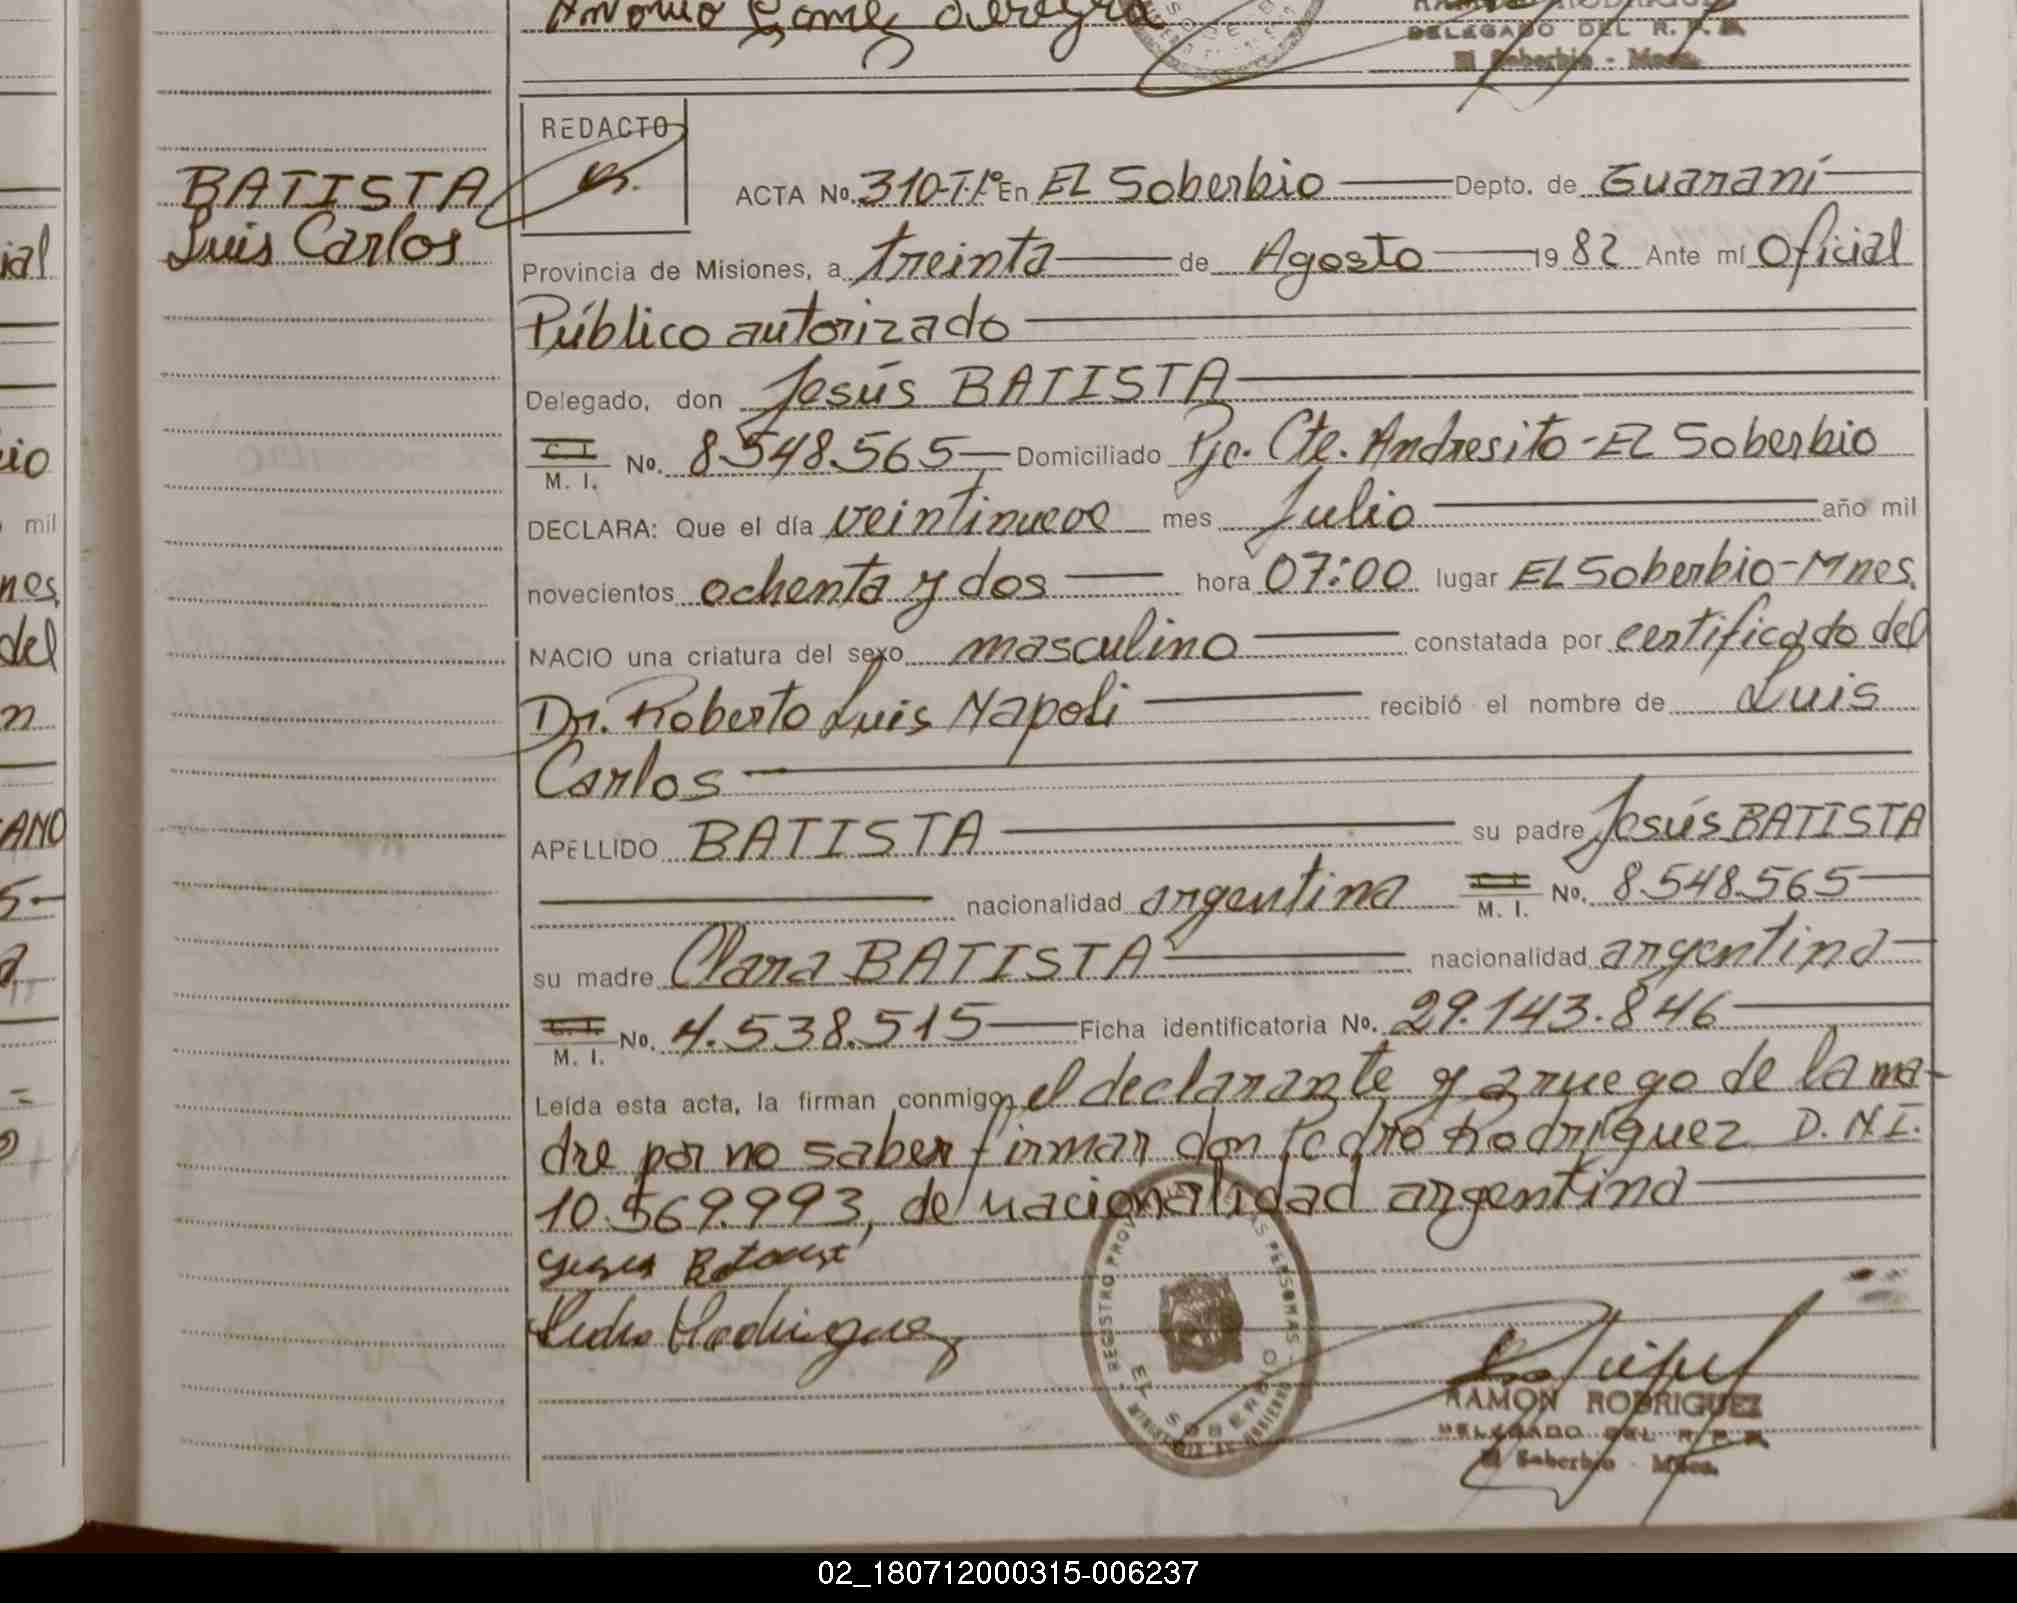 Antonio Gomez
DELEGADO DEL R. P. P.
El Soberbio - Mnes.
REDACTO
BATISTA
Luis Carlos
ACTA No. 310-T.1º En EL Soberbio Depto. de Guaraní
Provincia de Misiones, a treinta de Agosto 1982 Ante mí Oficial
Público autorizado
Delegado, don Jesús BATISTA
C. I.
M. I. No. 8.548.565 Domiciliado Pje. Cte. Andresito - EL Soberbio
DECLARA: Que el día veintinueve mes Julio año mil
novecientos ochenta y dos hora 07:00 lugar EL Soberbio - Mnes.
NACIO una criatura del sexo masculino constatada por certificado del
Dr. Roberto Luis Napoli recibió el nombre de Luis
Carlos
APELLIDO BATISTA su padre Jesús BATISTA
nacionalidad argentina M. I. No. 8.548.565
su madre Clara BATISTA nacionalidad argentina
C. I.
M. I. No. 4.538.515 Ficha identificatoria No. 29.143.846
Leída esta acta, la firman conmigo, el declarante y a ruego de la ma-
dre por no saber firmar don Pedro Rodriguez D.N.I.
10.569.993, de nacionalidad argentina
Pedro Rodriguez
REGISTRO PROV PERSONAS
EL SOBERBIO
RAMON RODRIGUEZ
DELEGADO DEL R. P. P.
El Soberbio - Mnes.
ial
io
mil
nes.
del
n
ANO
5-
a
02_180712000315-006237